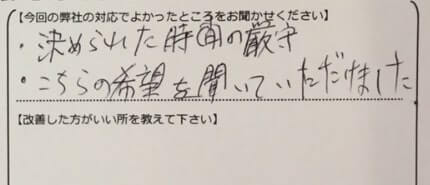 【今回の弊社の対応でよかったところをお聞かせください】
・決められた時間の厳守
・こちらの希望を聞いていただけました
【改善した方がいい所を教えて下さい】